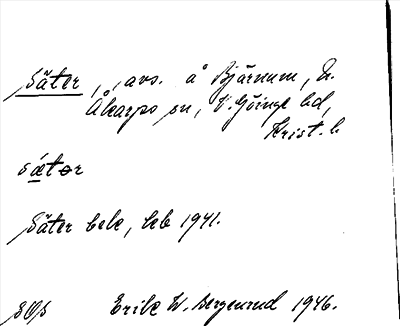 Säter, , avs. å Bjärnum, N.
Åkarps sn, V. Göinge hd,
Krist. l.
sätər
Säter bebe, leb 1941.
Erik W. Bergenrud 1946.